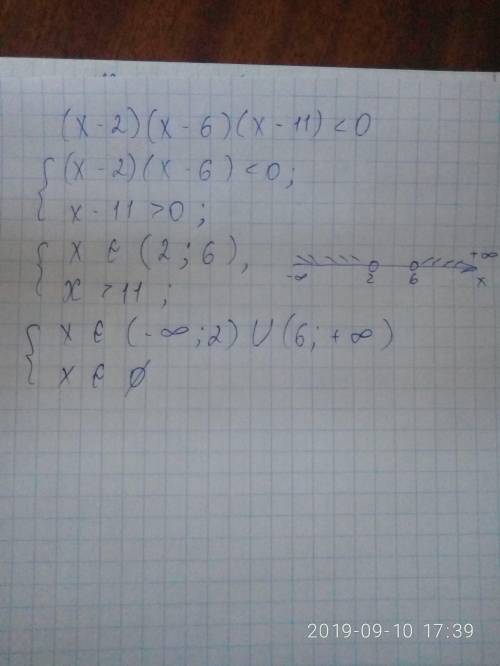 (x - 2)(x - 6)(x - 11) < 0
{ (x - 2)(x - 6) < 0;
x - 11 > 0;
{ x ∈ (2; 6),
x > 11;
-∞ 2 6 +∞ x
{ x ∈ (-∞; 2) ∪ (6; +∞)
x ∈ ∅
2019-09-10 17:39